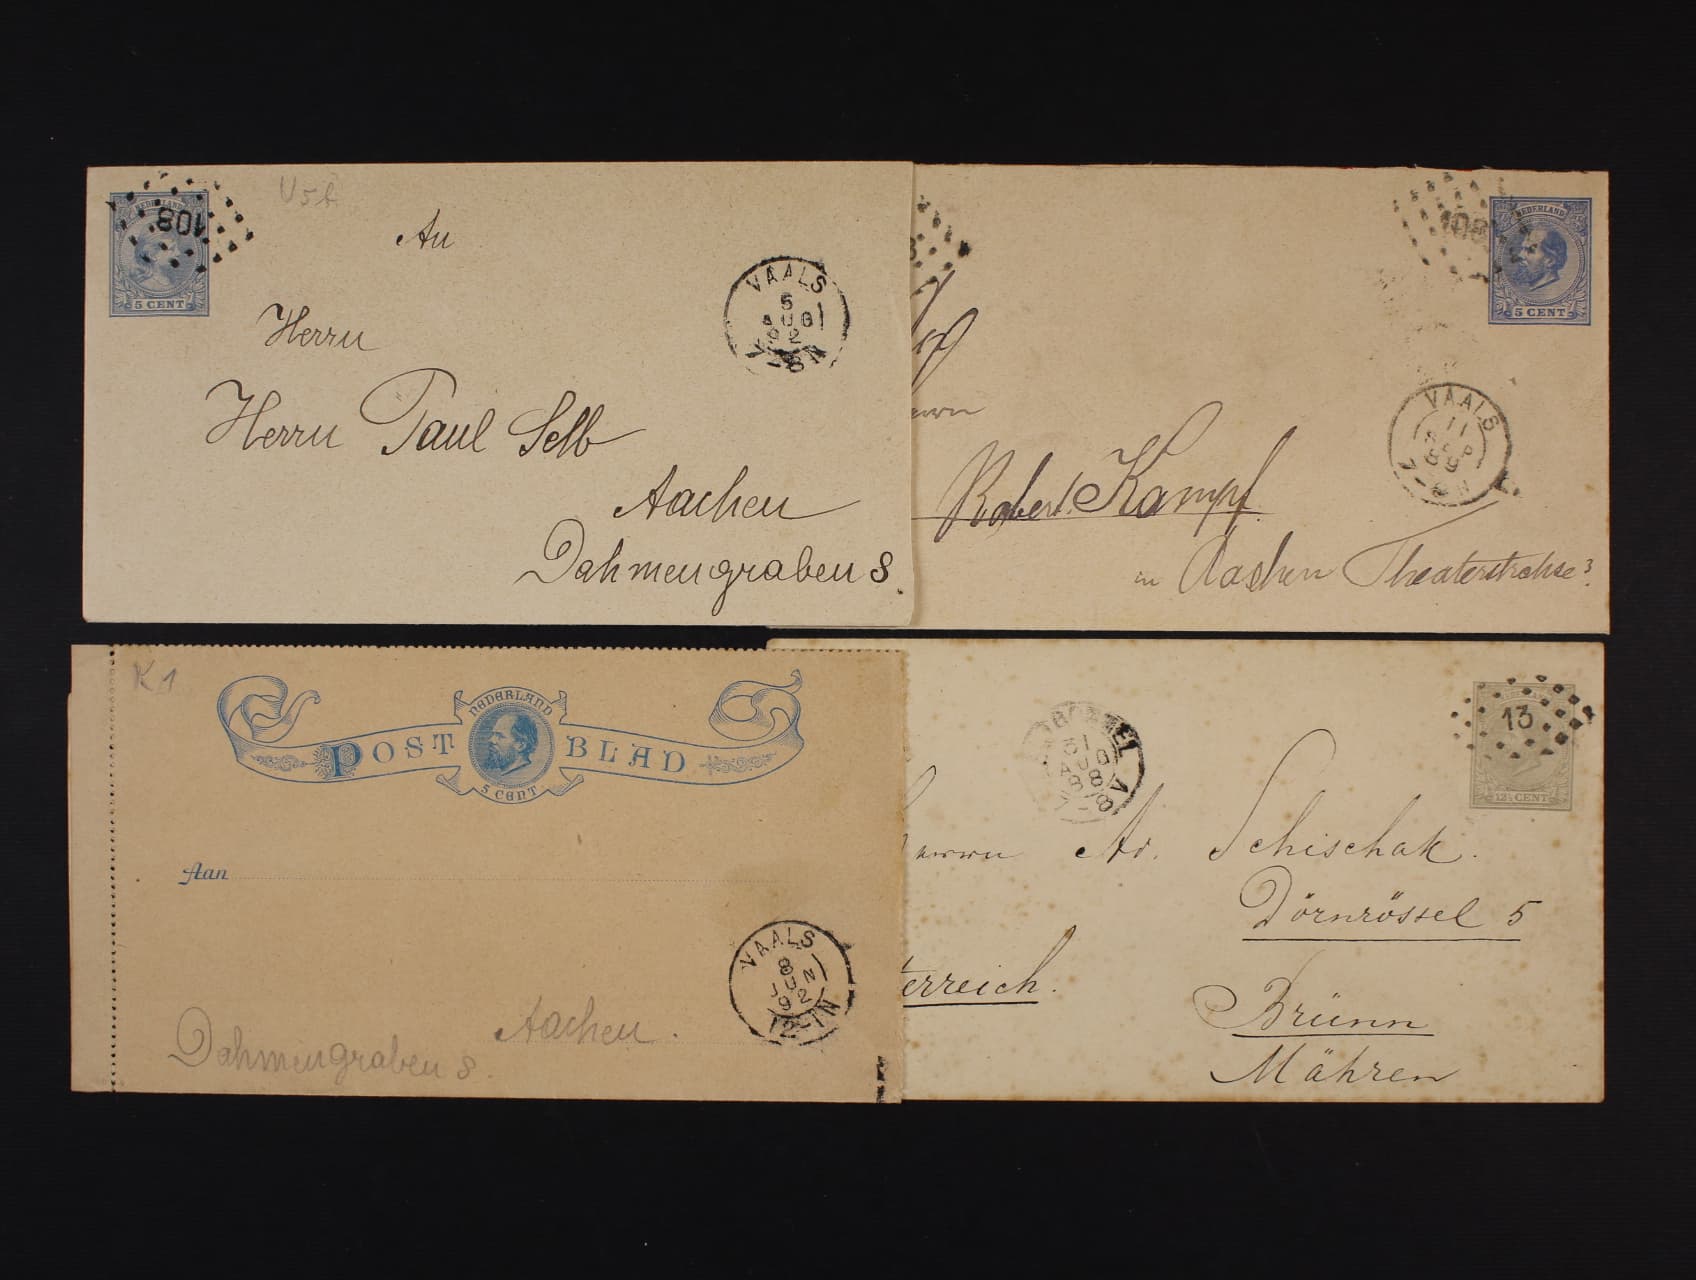 NEDERLAND
108
5 CENT
U5b
An
VAALS
5
AUG
92
7-8N
Herrn
Herrn Paul Selb
Aachen
Dahmengraben 8.
108
NEDERLAND
5 CENT
VAALS
11
SEP
89
7-8N
Robert Kampf
in Aachen Theaterstrasse 3.
K1
NEDERLAND
POSTBLAD
5 CENT
Aan
VAALS
8
JUN
92
12-1N
Aachen.
Dahmengraben 8.
13
12½ CENT
31
AUG
88
7-8V
Herrn Ad. Schischak.
Dörnrössel 5
terreich.
Brünn
Mähren